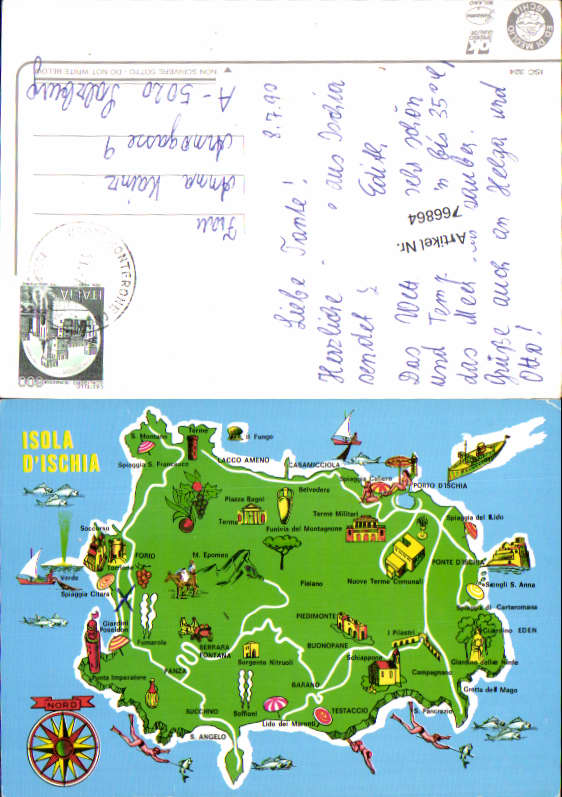 ED. DI MEGLIO
ISCHIA
ISC 324
NON SCRIVERE SOTTO - DO NOT WRITE BELOW
8.7.90
Liebe Tante!
Herzliche aus Ischia
sendet Edith
Das sehr schön
und Temp. bis 35°C,
das Meer sauber.
Grüße auch an Helga und
Otto!
Artikel Nr.
766864
Frau
Anna Kainz
9
A-5020 Salzburg
ITALIA
800
ISOLA
D'ISCHIA
S. Montano
Terme
Il Fungo
Spiaggia S. Francesco
LACCO AMENO
CASAMICCIOLA
Spiaggia
PORTO D'ISCHIA
Belvedere
Piazza Bagni
Terme
Terme Militari
Funivia del Montagnone
Spiaggia del Lido
Soccorso
Torrione
FORIO
M. Epomeo
PONTE D'ISCHIA
Verde
Fiaiano
Nuove Terme Comunali
Scogli S. Anna
Spiaggia Citara
Spiaggia di Cartaromana
Giardini
Poseidon
PIEDIMONTE
I Pilastri
Giardino EDEN
Fumarole
SERRARA
FONTANA
BUONOPANE
Sorgente Nitruoli
Schiappone
Giardino delle Ninfe
PANZA
Punta Imperatore
BARANO
Campagnano
Grotta del Mago
NORD
SUCCHIVO
Soffioni
TESTACCIO
S. Pancrazio
Lido dei Maronti
S. ANGELO